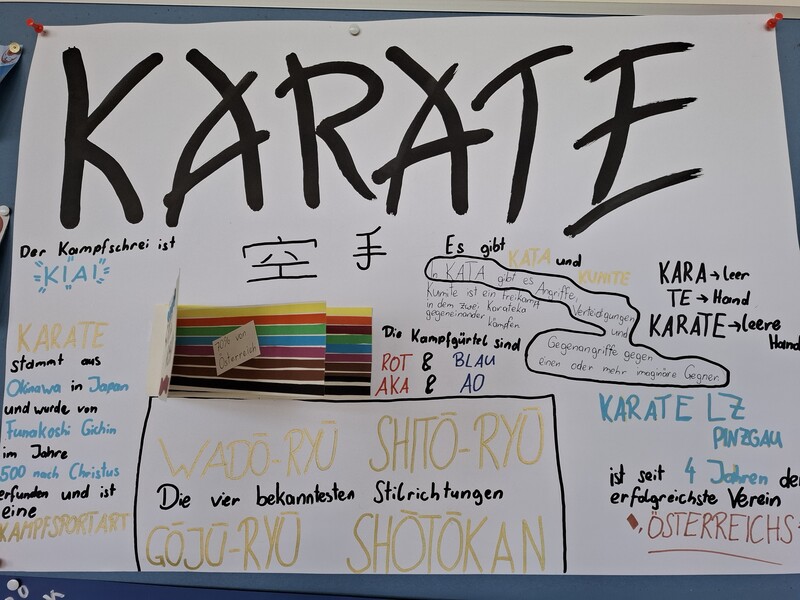 KARATE
Der Kampfschrei ist
KIAI
空手
Es gibt KATA und KUMITE
In KATA gibt es Angriffe,
Verteidigungen
und
Gegenangriffe gegen
einen oder mehr imaginäre Gegner.
Kumite ist ein freikampf
in dem zwei Karateka
gegeneinander kämpfen
KARA → leer
TE → Hand
KARATE → leere
Hand
KARATE
stammt aus
Okinawa in Japan
und wurde von
Funakoshi Gichin
im Jahre
500 nach Christus
erfunden und ist
eine
KAMPFSPORTART
70% von
Österreich
Die Kampfgürtel sind
ROT & BLAU
AKA & AO
WADŌ-RYŪ SHITŌ-RYŪ
Die vier bekanntesten Stilrichtungen
GŌJŪ-RYŪ SHŌTŌKAN
KARATE LZ
PINZGAU
ist seit 4 Jahren der
erfolgreichste Verein
ÖSTERREICHS